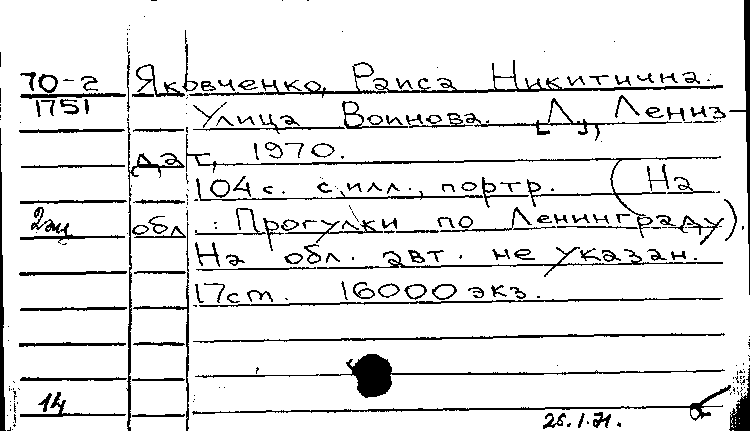 70-г Яковченко, Раиса Никитична.
1751 Улица Воинова. [Л.], Лениз-
дат, 1970.
104 с. с илл., портр. (На
2экз обл.: Прогулки по Ленинграду).
На обл. авт. не указан.
17ст. 16000 экз.
14
25.1.71.